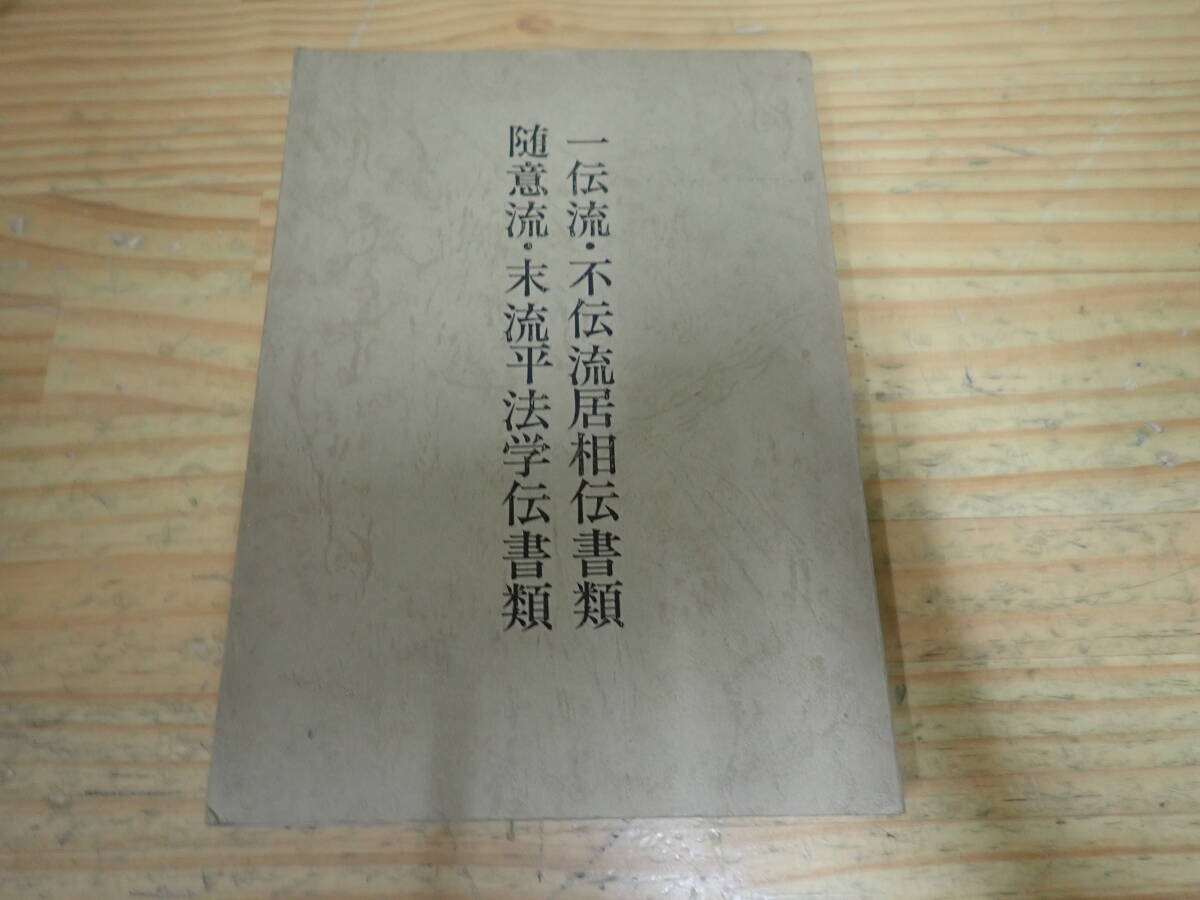 一伝流・不伝流居相伝書類
随意流・末流平法学伝書類